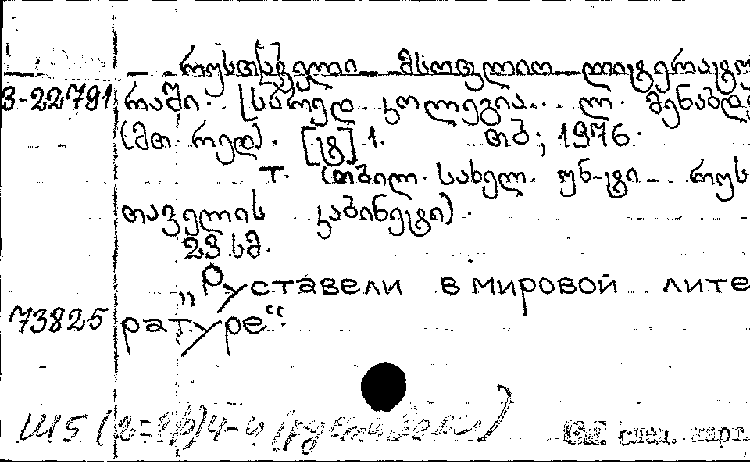 რუსთაველი მსოფლიო ლიტერატუ
3-22791 რაში. [სარედ. კოლეგია... ლ. მენაბდე
(მთ. რედ). [ტ] 1. თბ; 1976.
Т. (თბილ. სახელ. უნ-ტი. რუს
თაველის კაბინეტი).
23 სმ.
„Руставели в мировой лите
73825 ратуре“.
Ш5(2=Гр)4-4